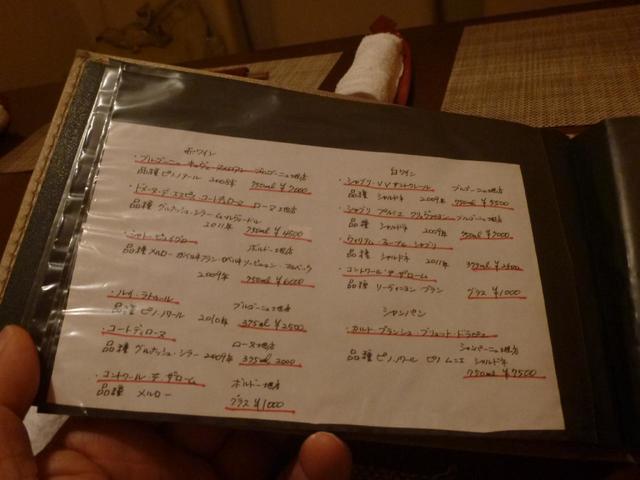 赤ワイン
・ブルゴーニュ ブルゴーニュ地方
品種 ピノノワール 2008年 750ml ¥7000
ローヌ地方
品種 グルナッシュ・シラー・ムールヴェードル
2011年 750ml ¥4500
・シャトー ボルドー地方
品種 メルロー カベルネフラン・カベルネソービニヨン・マルベック
2009年 750ml ¥6000
・ルイ・ラトゥール ブルゴーニュ地方
品種 ピノノワール 2010年 375ml ¥2500
・コートディローヌ ローヌ地方
品種 グルナッシュ・シラー 2009年 375ml 2000
・コントワール デ ダローム ボルドー地方
品種 メルロー グラス ¥1000
白ワイン
・シャブリ VV サントクレール ブルゴーニュ地方
品種 シャルドネ 2009年 750ml ¥5500
・シャブリ プルミエ ブルゴーニュ地方
品種 シャルドネ 2009年 750ml ¥7000
・ウィリアム・フェーブル シャブリ
品種 シャルドネ 2011年 375ml
・コントワール デ ダローム
品種 ソーヴィニヨン ブラン グラス ¥1000
シャンパン
・カルト・ブランシュ・ブリュット・ドラピエ
シャンパーニュ地方
品種 ピノノワール ピノムニエ シャルドネ
750ml ¥7500